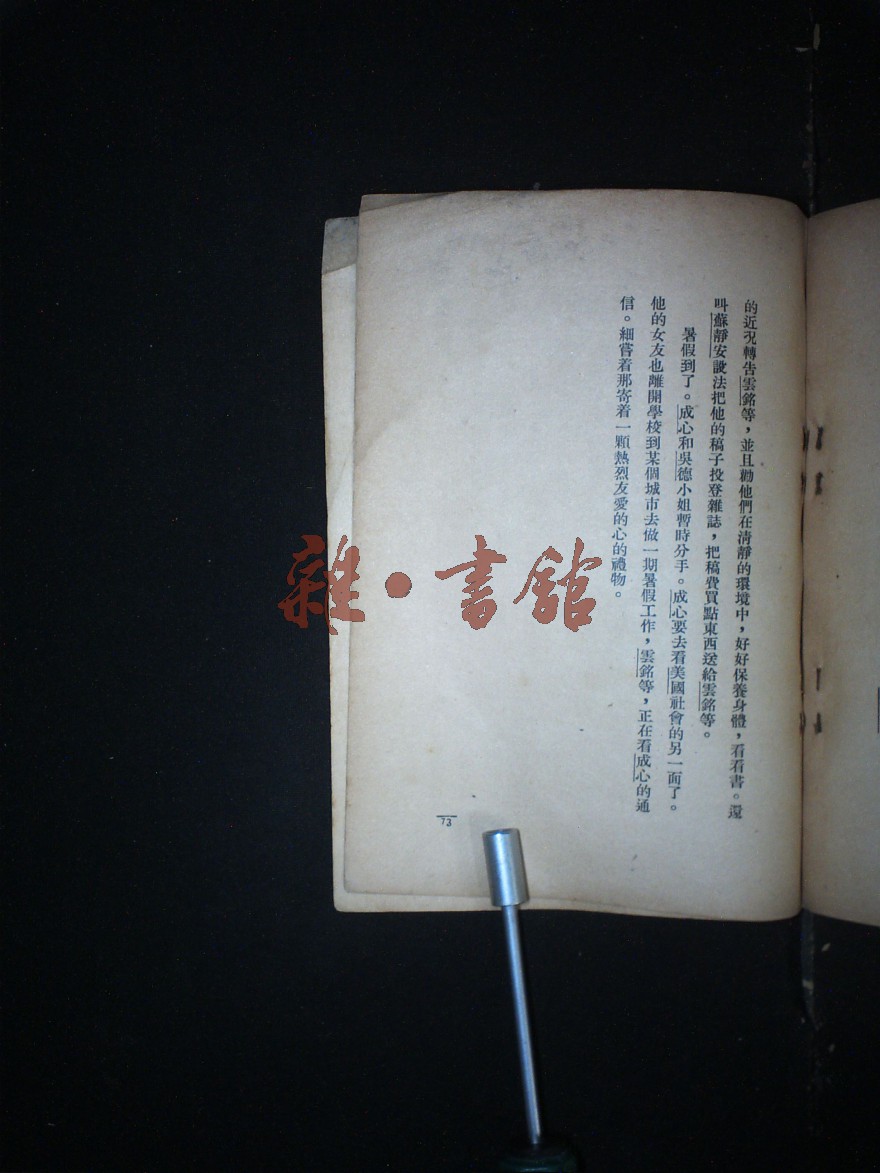 的近況轉告雲銘等，並且勸他們在清靜的環境中，好好保養身體，看看書。還
叫蘇靜安設法把他的稿子投登雜誌，把稿費買點東西送給雲銘等。
暑假到了。成心和吳德小姐暫時分手。成心要去看美國社會的另一面了。
他的女友也離開學校到某個城市去做一期暑假工作，雲銘等，正在看成心的通
信。細嘗着那寄着一顆熱烈友愛的心的禮物。
73
雜·書館